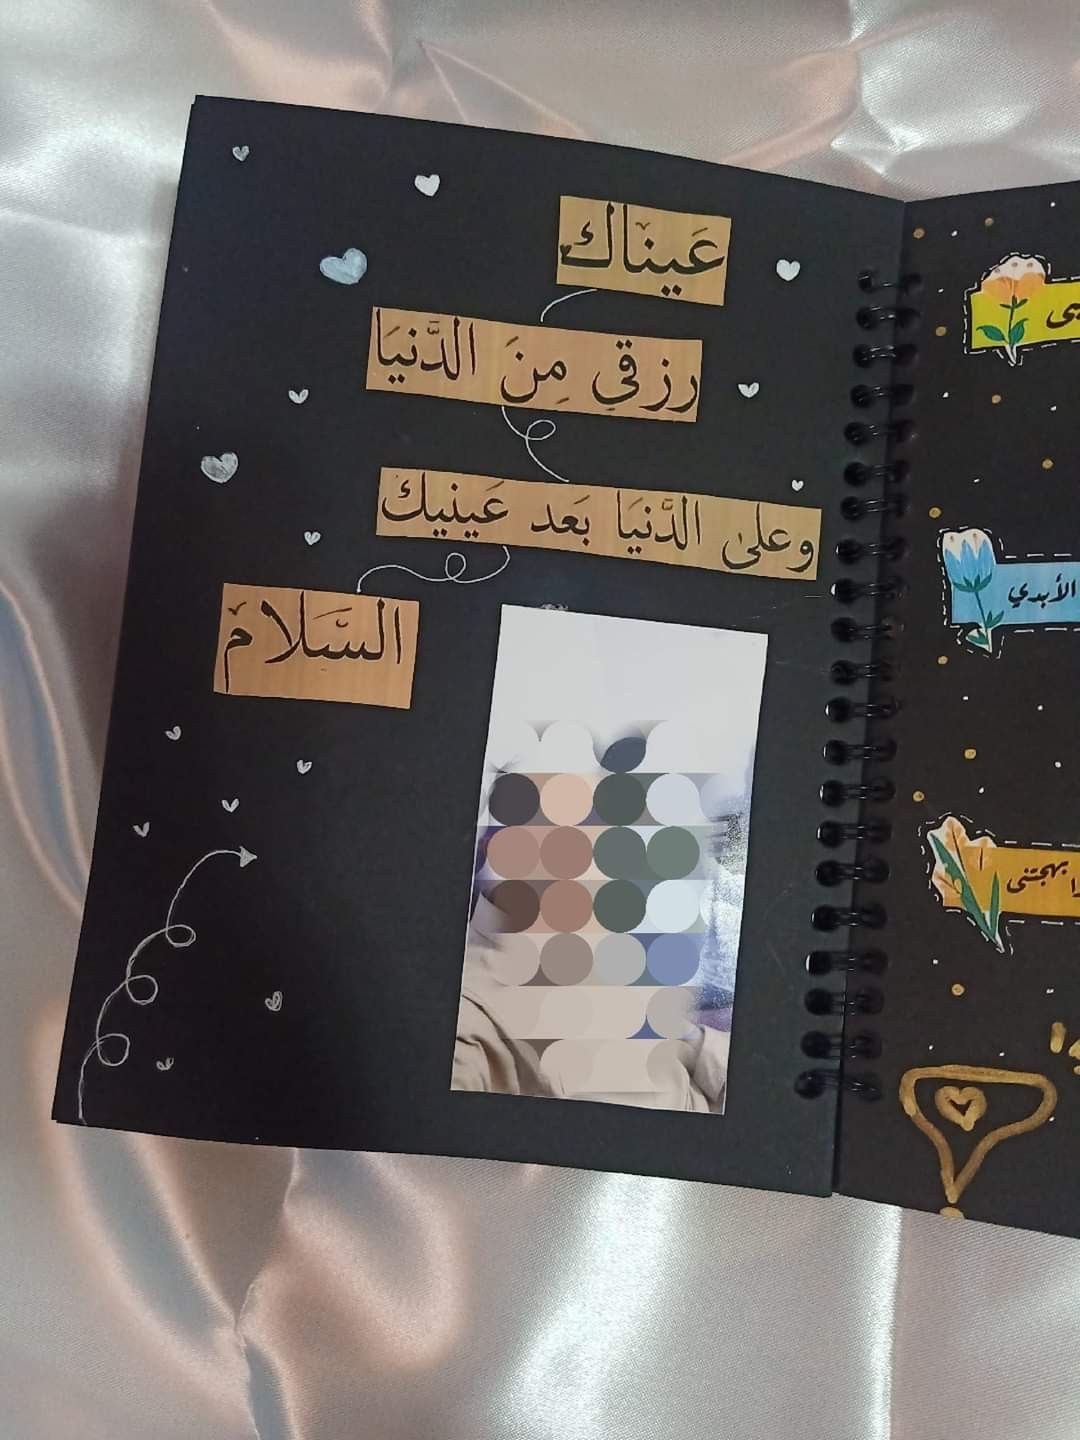 عَيناك
رزقي مِنَ الدَّنيَا
وعلىٰ الدَّنيَا بَعد عَينيك
السَّلام
الأبدي
بهجتي